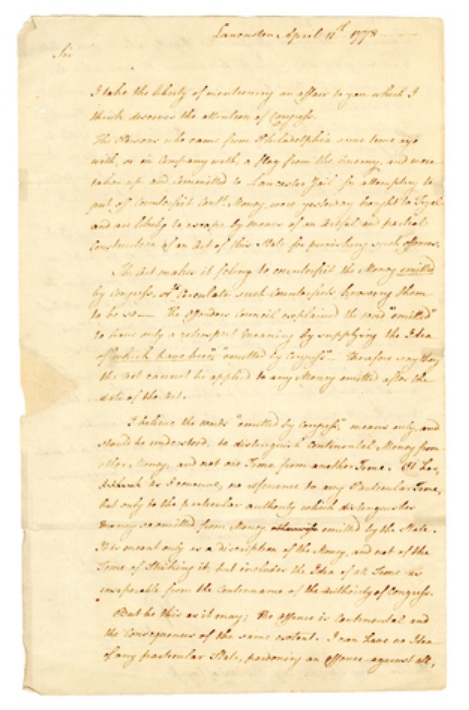 Lancaster April 11th 1778
Sir
I take the liberty of mentioning an affair to you which I
think deserves the attention of Congress.
The Persons who came from Philadelphia some time ago
with, or in Company with, a flag from the enemy, and were
taken up and committed to Lancaster Jail for attempting to
put off Counterfeit Contl. Money, were yesterday brought to Tryal
and are likely to escape by means of an artful and partial
Construction of an Act of this State for punishing such offences.
The Act makes it felony to counterfeit the Money emitted
by Congress, or to circulate such Counterfeits knowing them
to be so — The offenders Council explained the word "emitted"
to have only a retrospect meaning by supplying the Idea
of "which have been" "emitted by Congress" — Therefore say they
the Act cannot be applied to any Money emitted after the
date of the Act.
I believe the words "emitted by Congress" means only, and
should be understood, to distinguish Continental Money from
other Money, and not one Time from another Time. It has,
as I conceive, no reference to any Particular Time,
but only to the particular authority which distinguishes
Money so emitted from Money otherwise emitted by the State.
It is meant only as a discription of the Money, and not of the
Time of Striking it, but includes the Idea of all Time as
inseparable from the Continuance of the authority of Congress.
But be this as it may; the offence is Continental and
the Consequences of the same extent. I can have no Idea
of any particular State, pardoning an offence against all,